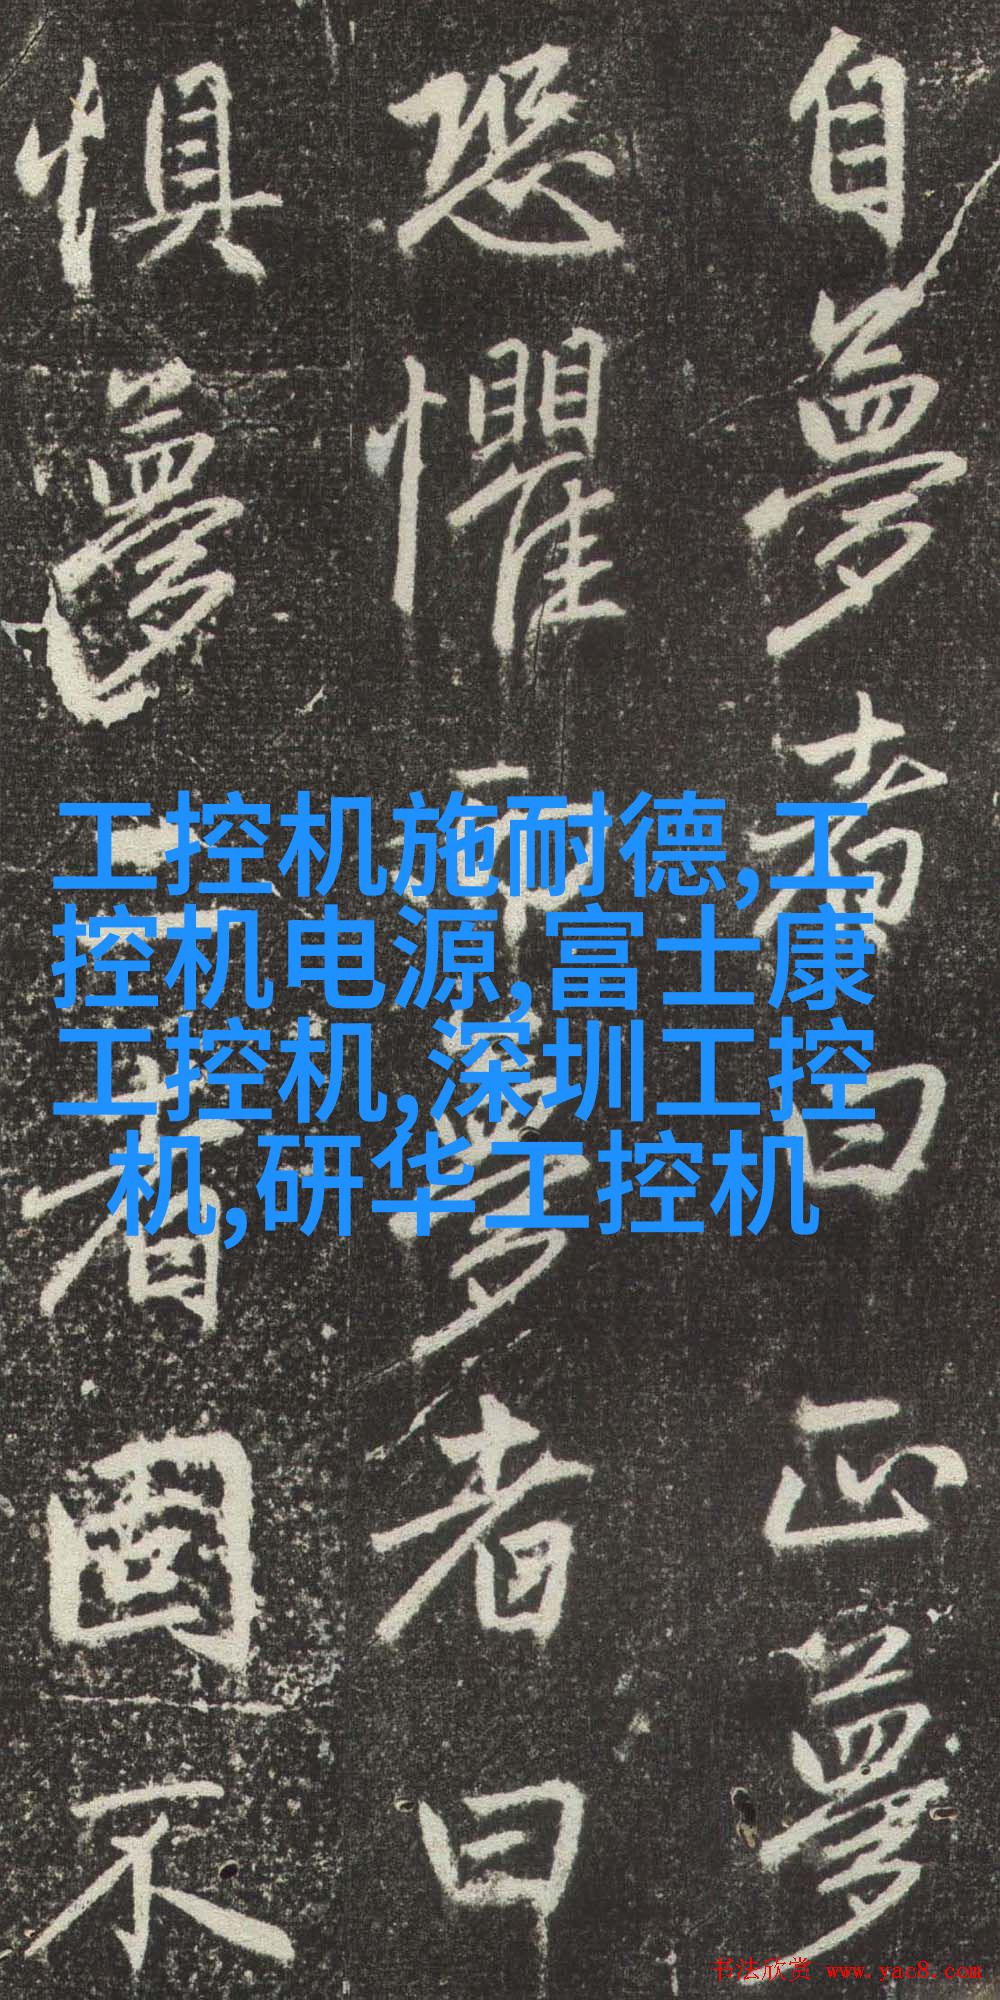 自夢者曰正夢
恐懼而夢者曰
惧夢二者固不
工控机施耐德,工
控机电源,富士康
工控机,深圳工控
机,研华工控机
书法欣赏 www.yac8.com